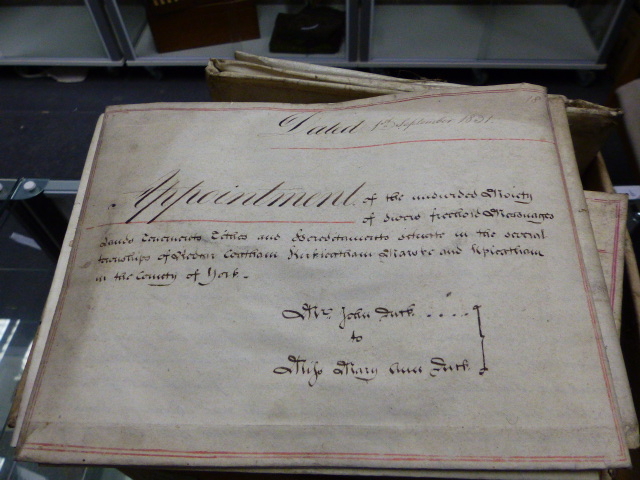 Dated 1st September 1831
Appointment of the undivided Moiety
of divers freehold Messuages
Lands Tenements Tithes and Hereditaments situate in the several
townships of Redcar Coatham Kirkleatham Marske and Upleatham
in the County of York.
Mr. John
to
Miss Mary Ann